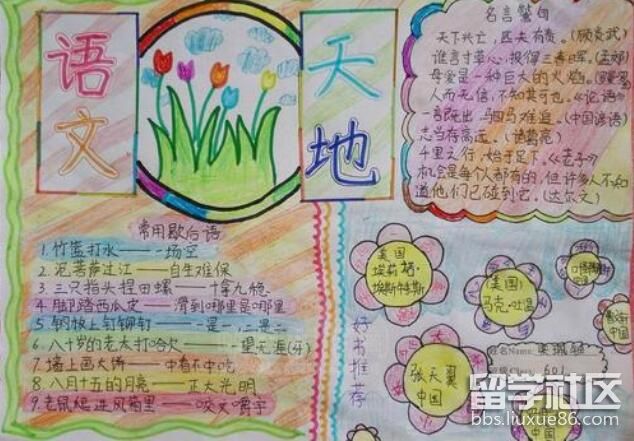 语文
天地
名言警句
天下兴亡，匹夫有责。(顾炎武)
谁言寸草心，报得三春晖。(孟郊)
母爱是一种巨大的火焰。
人而无信，不知其可也。《论语》
一言既出，马四马难追。(中国谚语)
志当存高远。(诸葛亮)
千里之行，始于足下。《老子》
机会是每个人都有的，但许多人不知
道他们已碰到它。(达尔文)
常用歇后语
1.竹篮打水——一场空
2.泥菩萨过江——自生难保
3.三只指头捏田螺——十拿九稳
4.脚踏西瓜皮——滑到哪里是哪里
5.钢板上钉铆钉——一是一,二是二
6.八十岁的老太打哈欠——一望无涯(牙)
7.墙上画大饼——中看不中吃
8.八月十五的月亮——正大光明
9.老鼠跑进风箱里——咬文嚼字
好书推荐
美国
埃莉塔·
埃斯特斯
(美国)
马克·吐温
张天翼
中国
中国
姓名Name
班级Class 601
中国
留学社区
bbs.liuxue86.com